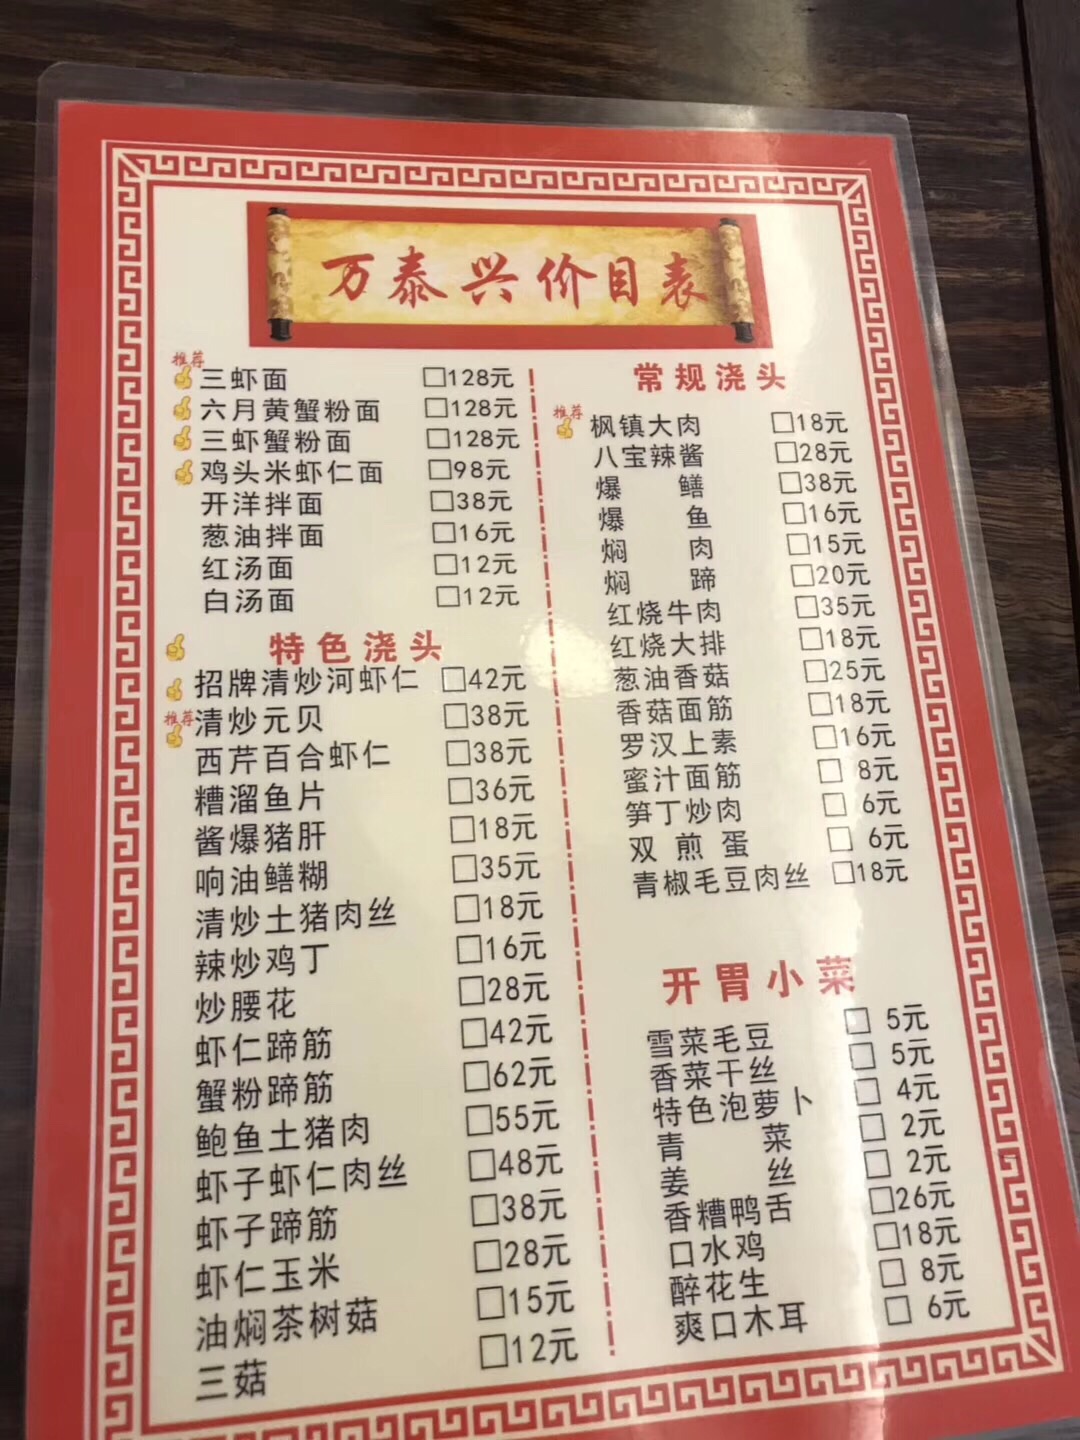 万泰兴价目表
推荐
三虾面 □128元
六月黄蟹粉面 □128元
三虾蟹粉面 □128元
鸡头米虾仁面 □98元
开洋拌面 □38元
葱油拌面 □16元
红汤面 □12元
白汤面 □12元
特色浇头
招牌清炒河虾仁 □42元
推荐
清炒元贝 □38元
西芹百合虾仁 □38元
糟溜鱼片 □36元
酱爆猪肝 □18元
响油鳝糊 □35元
清炒土猪肉丝 □18元
辣炒鸡丁 □16元
炒腰花 □28元
虾仁蹄筋 □42元
蟹粉蹄筋 □62元
鲍鱼土猪肉 □55元
虾子虾仁肉丝 □48元
虾子蹄筋 □38元
虾仁玉米 □28元
油焖茶树菇 □15元
三菇 □12元
常规浇头
推荐
枫镇大肉 □18元
八宝辣酱 □28元
爆鳝 □38元
爆鱼 □16元
焖肉 □15元
焖蹄 □20元
红烧牛肉 □35元
红烧大排 □18元
葱油香菇 □25元
香菇面筋 □18元
罗汉上素 □16元
蜜汁面筋 □8元
笋丁炒肉 □6元
双煎蛋 □6元
青椒毛豆肉丝 □18元
开胃小菜
雪菜毛豆 □5元
香菜干丝 □5元
特色泡萝卜 □4元
青菜 □2元
姜丝 □2元
香糟鸭舌 □26元
口水鸡 □18元
醉花生 □8元
爽口木耳 □6元